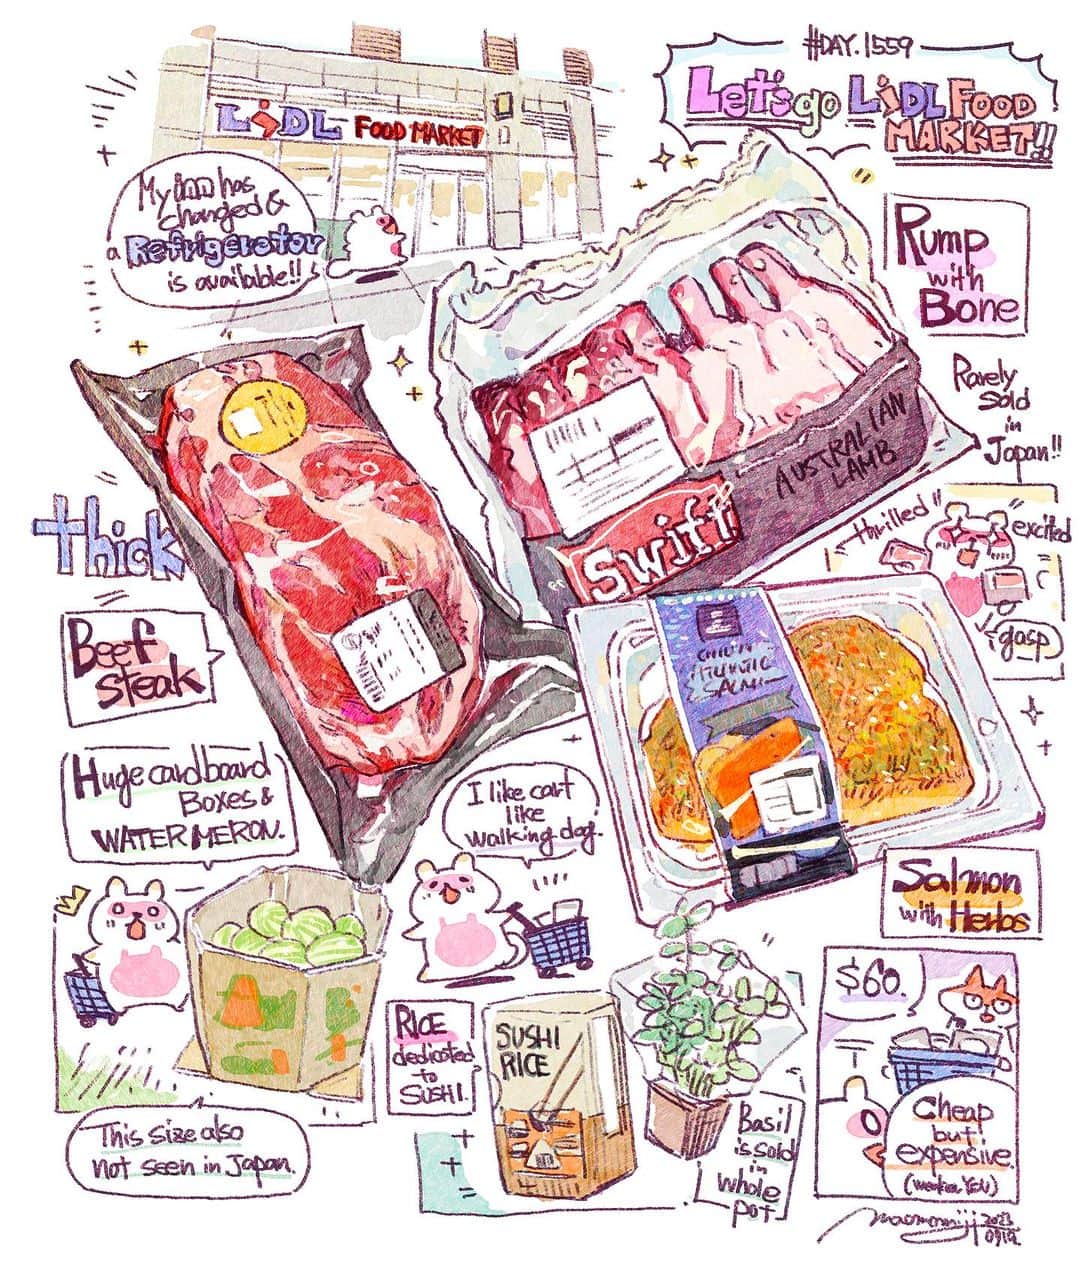 #DAY.1559
Let's go LiDL FOOD
MARKET!!
LiDL FOOD MARKET
My inn has
changed &
a Refrigerator
is available!!
Rump
with
Bone
Rarely
sold
in
Japan!!
AUSTRALIAN
LAMB
Swift
thrilled
excited
gasp
thick
Beef
steak
SALM
Salmon
with Herbs
Huge cardboard
BOXES &
WATERMERON.
I like cart
like
walking dog.
This size also
not seen in Japan.
RICE
dedicated
to
SUSHI.
SUSHI
RICE
Basil
is sold
in
whole
POT
$60.
Cheap
but
expensive.
(weaken YEN)
maomomiji 2023
0912